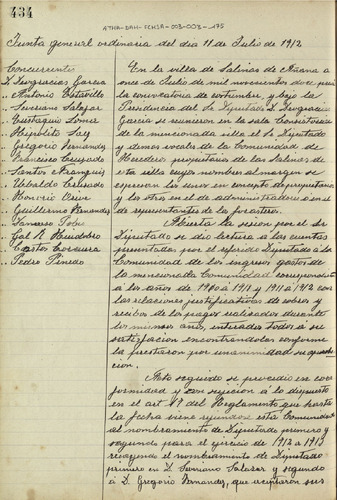 434
ATHA-DAH-FCHSA-003-003-175
Junta general ordinaria del dia 11 de Julio de 1912
Concurrentes
D. Deogracias Garcia
" Antonio Estavillo
" Severiano Salazar
" Eustaquio Loma
" Hipolito Saez
" Gregorio Fernandez
" Francisco Cruzado
" Santos Frangüis
" Ubaldo Cruzado
" Honorio Urive
" Guillermo Fernandez
" Tobi
" Gal R
" Carlos
" Pedro Pinedo
En la villa de Salinas de Añana a
once de Julio de mil novecientos doce previa
la convocatoria de costumbre, y bajo la
Presidencia del Sr Diputado D. Deogracias
Garcia se reunieron en la sala Consistorial
de la mencionada villa el Sr Diputado
y demas vocales de la Comunidad de
Herederos propietarios de las Salinas de
esta villa cuyos nombres al margen se
espresan los unos en concepto de propietarios
y los otros en el de administradores o sea
de representantes de los forasteros.
Abierta la sesion por el Sr
Diputado se dio lectura a las cuentas
presentadas por el referido Diputado á la
Comunidad de los ingresos gastos de
la mencionada Comunidad correspondientes
a los años de 1910 á 1911 y 1911 á 1912 con
las relaciones justificativas de cobros y
recibos de los pagos realizados durante
los mismos años, enterados todos a su
satisfaccion encontrandolas conforme
la prestaron por unanimidad su aprobacion
cion.
Acto seguido se procedió en con
formidad y con sujecion á lo dispuesto
en el art 49 del Reglamento que hasta
la fecha viene rigiendo esta Comunidad
al nombramiento de Diputado primero y
segundo para el ejercicio de 1912 a 1913
recayendo el nombramiento de Diputado
primero en D. Severiano Salazar y segundo
á D. Gregorio Fernandez, que aceptaron sus